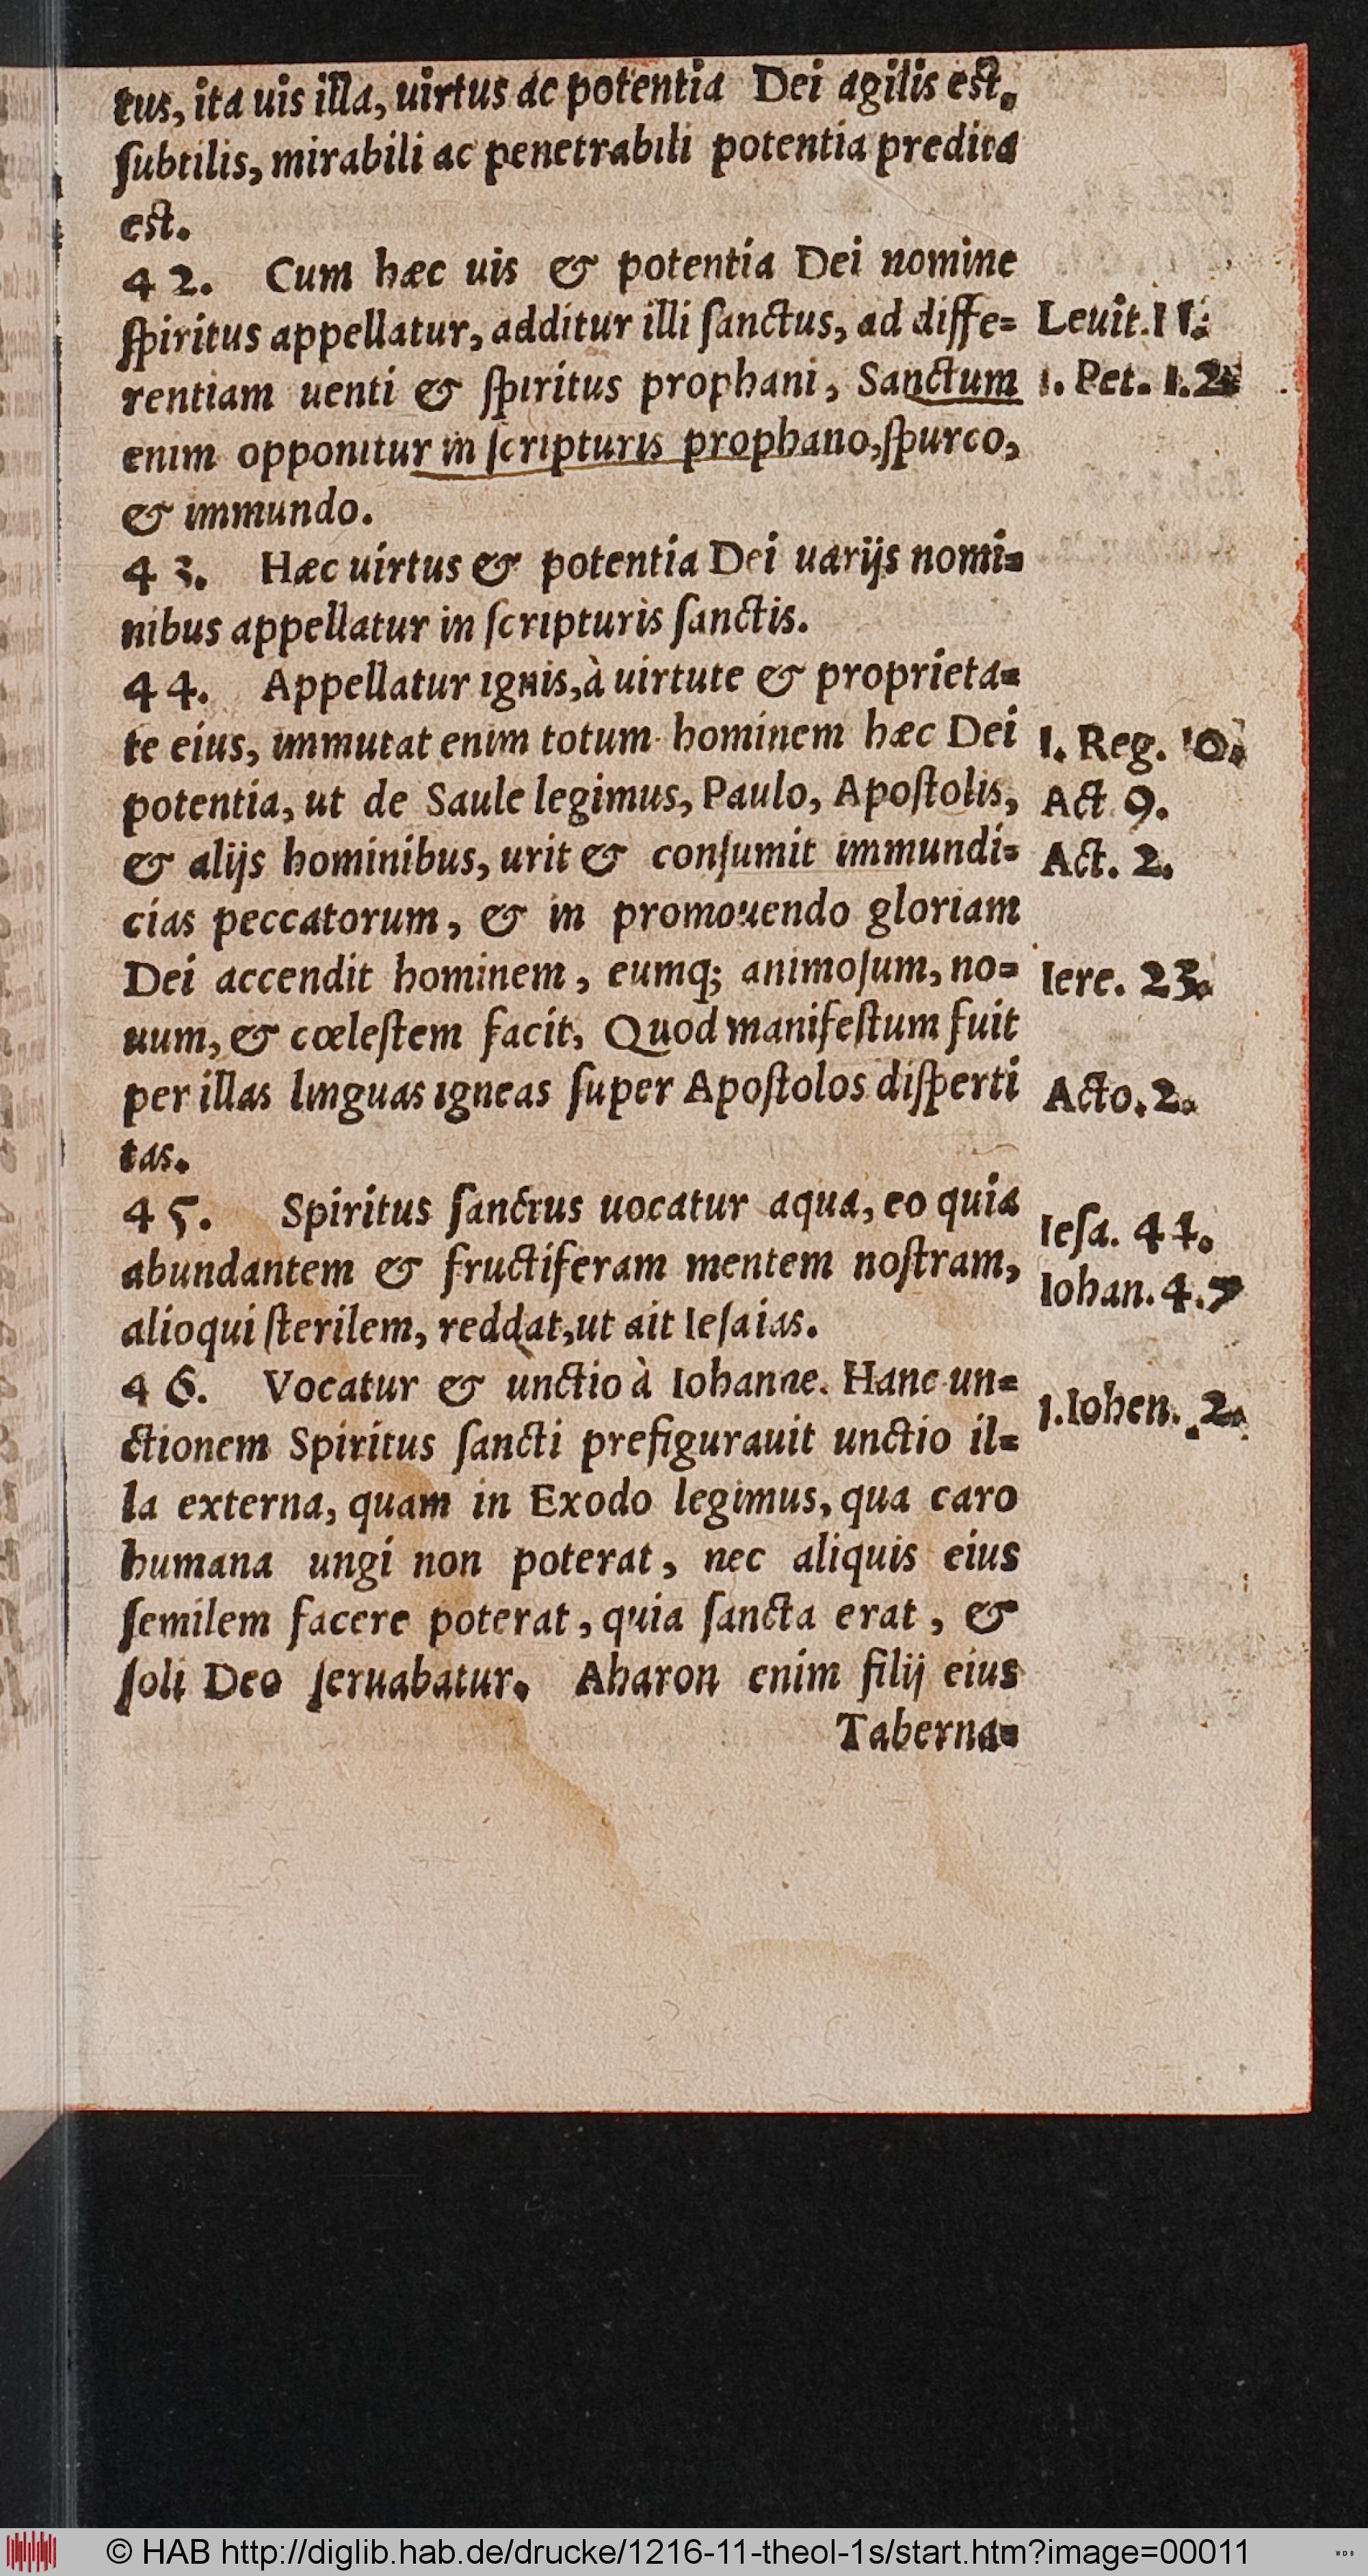 tus, ita uis illa, uirtus ac potentia Dei agilis est.
ſubtilis, mirabili ac penetrabili potentia predita
est.
42. Cum hæc uis & potentia Dei nomine
ſpiritus appellatur, additur illi ſanctus, ad diffe= Leuit. 11.
rentiam uenti & ſpiritus prophani, Sanctum 1. Pet. 1.2
enim opponitur in ſcripturis prophano, ſpurco,
& immundo.
43. Hæc uirtus & potentia Dei uarijs nomi=
nibus appellatur in ſcripturis ſanctis.
44. Appellatur ignis, à uirtute & proprieta=
te eius, immutat enim totum hominem hæc Dei 1. Reg. 10.
potentia, ut de Saule legimus, Paulo, Apoſtolis, Act 9.
& alijs hominibus, urit & conſumit immundi= Act. 2.
cias peccatorum, & in promouendo gloriam
Dei accendit hominem, eumq; animoſum, no= Iere. 23.
uum, & cœleſtem facit, Quod manifeſtum fuit
per illas linguas igneas ſuper Apoſtolos diſperti Acto. 2.
tas.
45. Spiritus ſanctus uocatur aqua, eo quia
abundantem & fructiferam mentem noſtram, Ieſa. 44.
alioqui ſterilem, reddat, ut ait Ieſaias. Iohan. 4.7
46. Vocatur & unctio à Iohanne. Hanc un=
ctionem Spiritus ſancti prefigurauit unctio il= 1. Iohen. 2.
la externa, quam in Exodo legimus, qua caro
humana ungi non poterat, nec aliquis eius
ſemilem facere poterat, quia ſancta erat, &
ſoli Deo ſeruabatur. Aharon enim filij eius
Taberna=
© HAB http://diglib.hab.de/drucke/1216-11-theol-1s/start.htm?image=00011